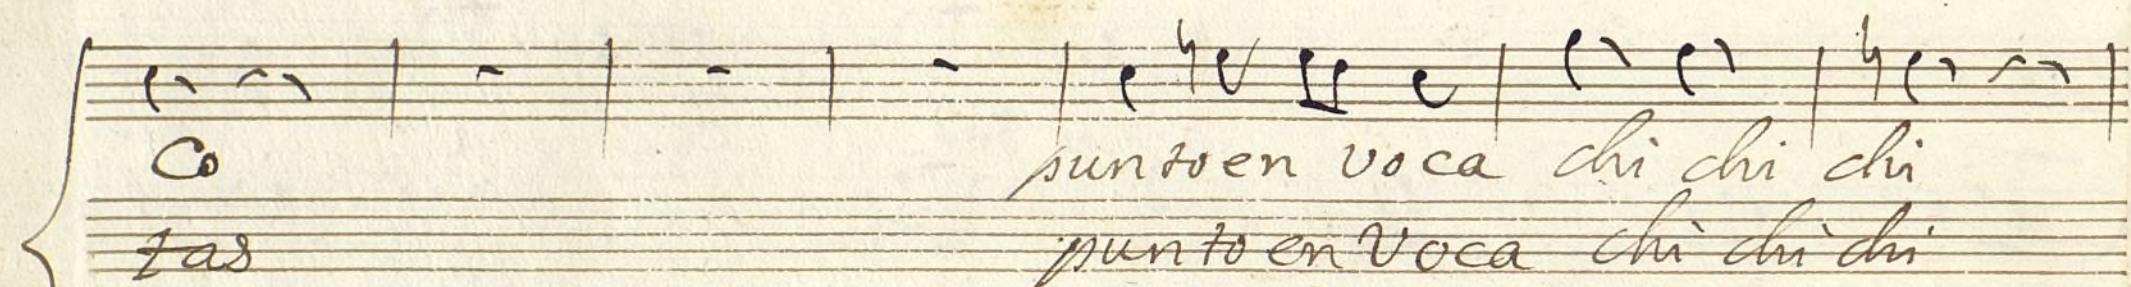 Co punto en voca chi chi chi
tas punto en voca chi chi chi